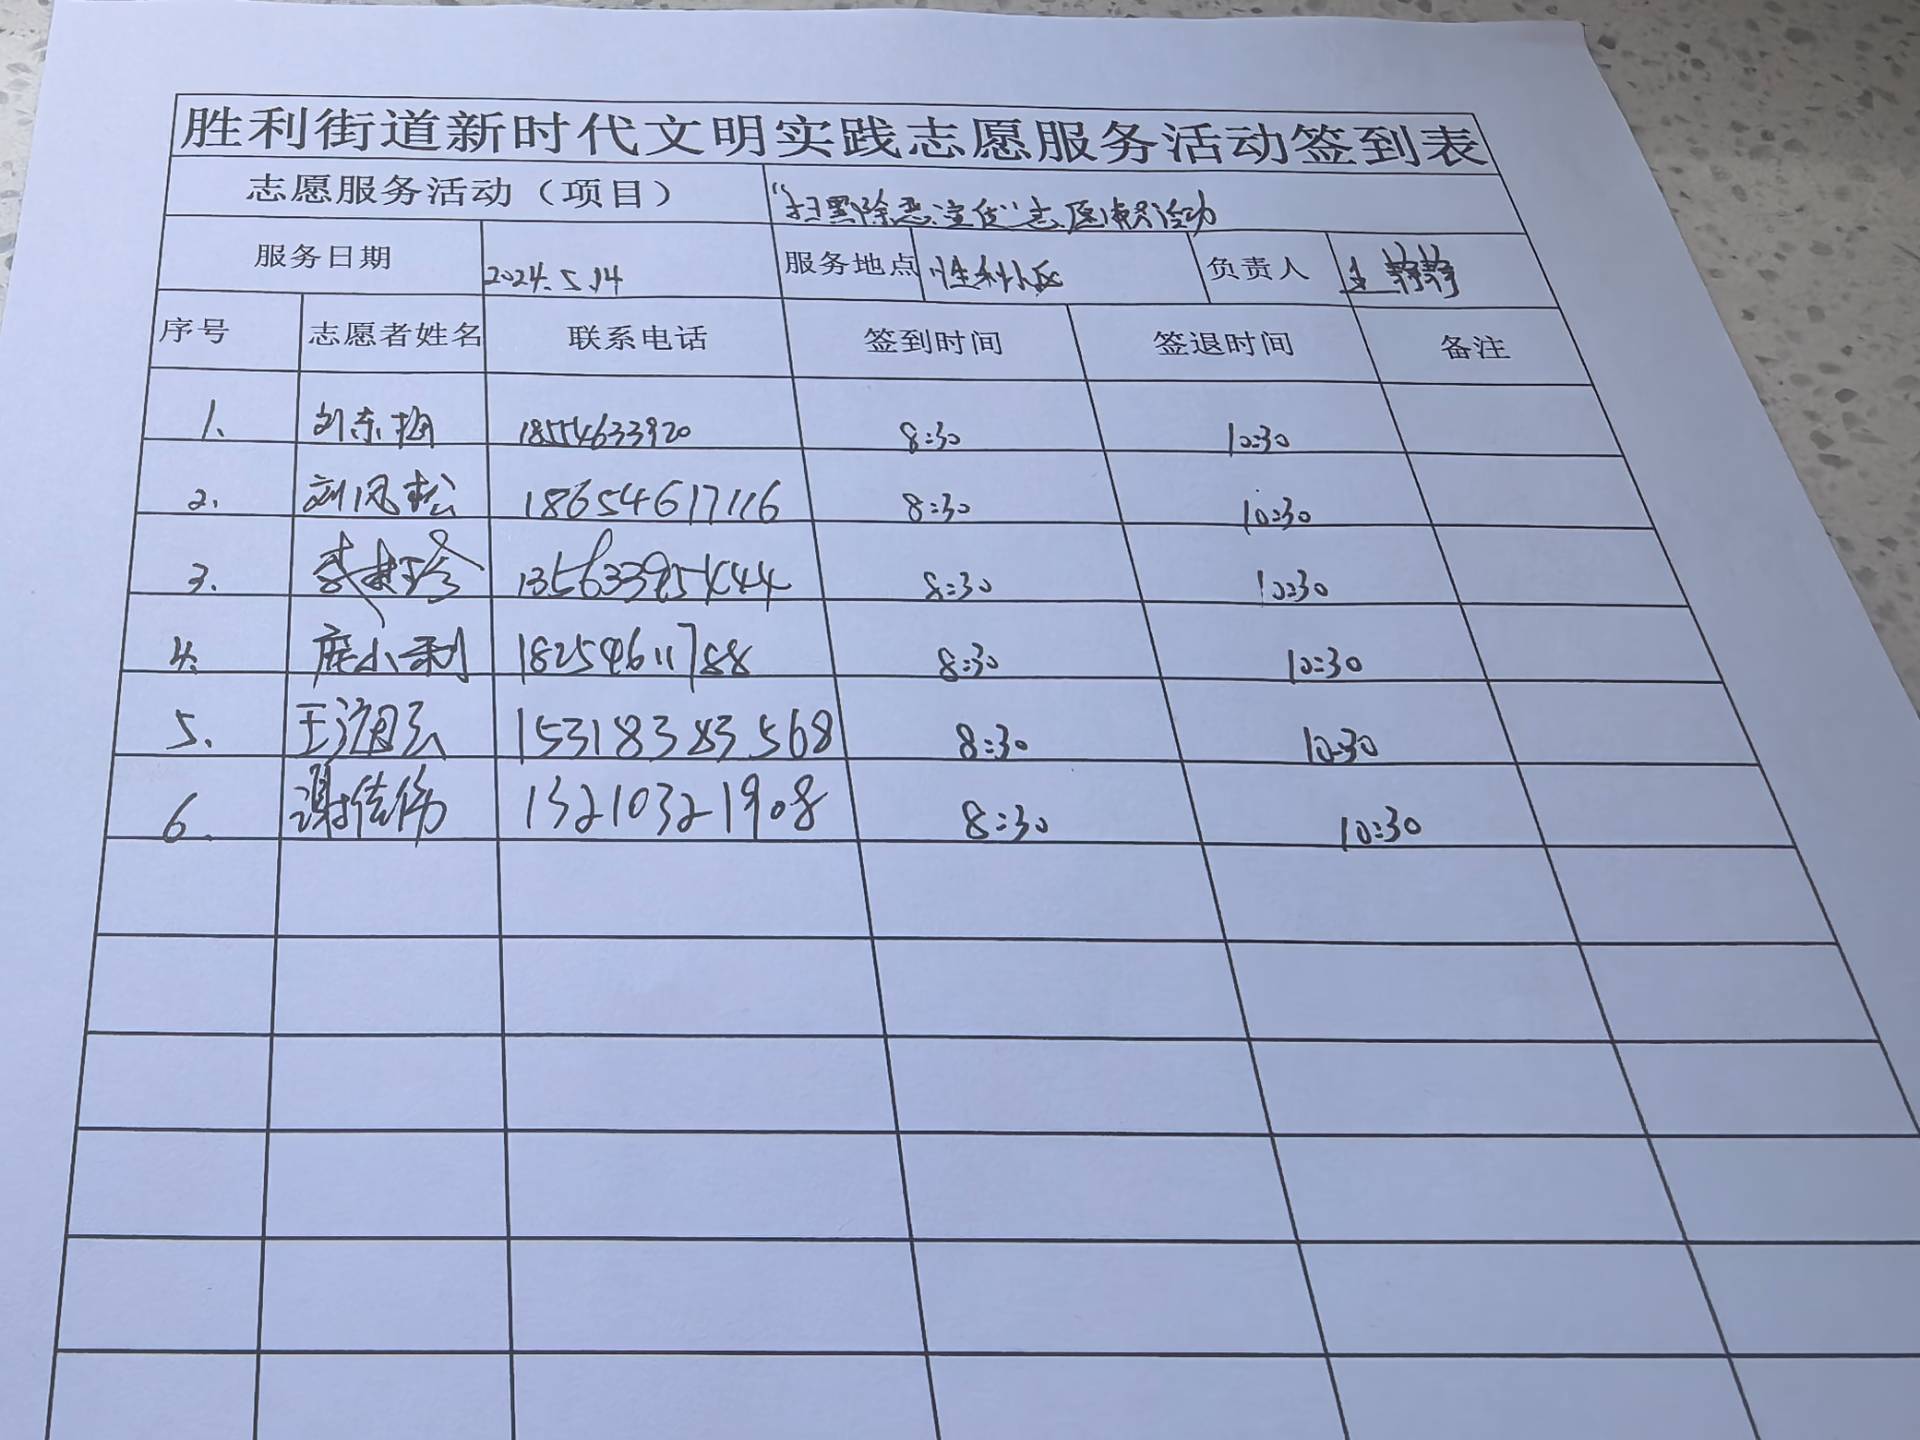 胜利街道新时代文明实践志愿服务活动签到表
志愿服务活动（项目） “扫黑除恶宣传”志愿服务活动
服务日期 2024.5.14 服务地点 胜利小区 负责人 王静静
序号 志愿者姓名 联系电话 签到时间 签退时间 备注
1. 刘东梅 18554633920 8:30 10:30
2. 刘凤松 18654617116 8:30 10:30
3. 13563395444 8:30 10:30
4. 庞小利 18254611788 8:30 10:30
5. 王海弘 15318383568 8:30 10:30
6. 谢佳伟 13210321908 8:30 10:30